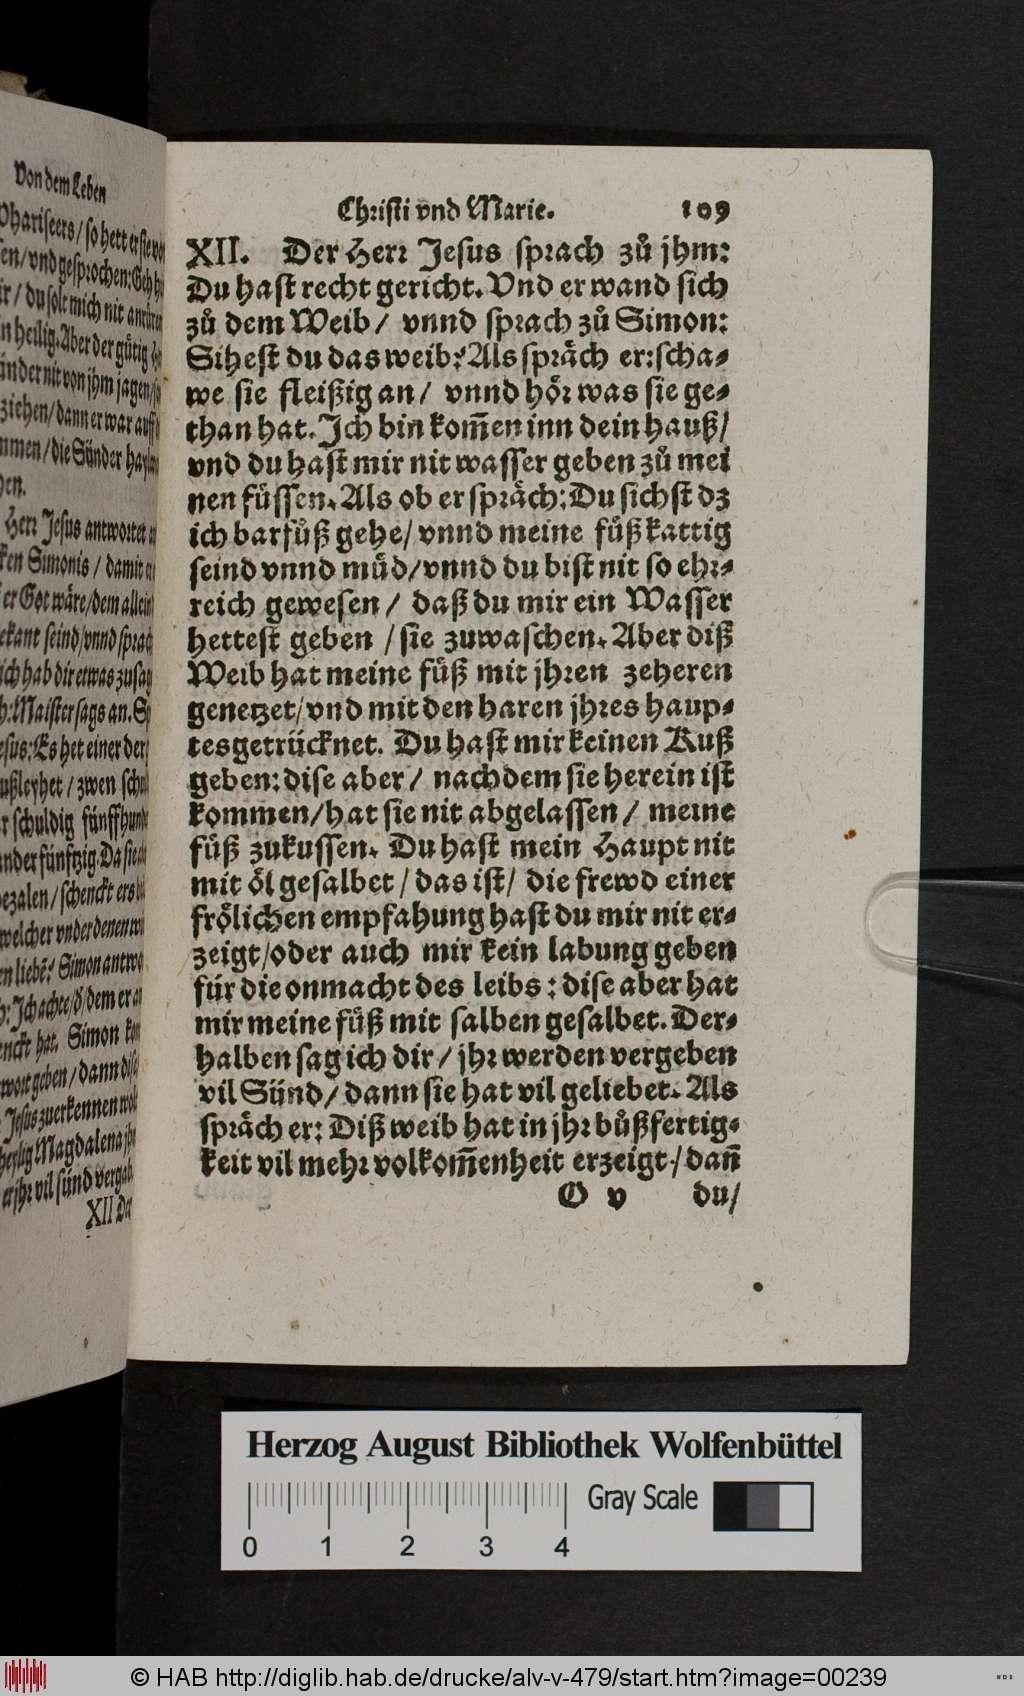 Von dem Leben
Phariseers / so hett er sie
vnd gesprochen: Geh
/ du solt mich nit anrüren
heilig. Aber der gütig
nit von jhm jagen /
ziehen / dann er war auff
/ die Sünder
Herr Jesus antwortet
Simonis / damit
er Got wäre / dem allein
seind / vnnd sprach
ich hab dir etwas zusag
: Maister sags an.
: Es het einer der
/ zwen
schuldig fünffhund
fünfftzig. Da sie
/ schenckt ers
welcher vnder denen
liebẽ? Simon antwo
: Ich achte / d / dem er
hat. Simon
geben / dann
Jesus zuerkennen
Magdalena
er jhr vil sünd vergab
XII Der
Christi vnd Marie. 109
XII. Der Herr Jesus sprach zů jhm:
Du hast recht gericht. Vnd er wand sich
zů dem Weib / vnnd sprach zů Simon:
Sihest du das weib? Als spräch er: scha-
we sie fleißig an / vnnd hör was sie ge-
than hat. Ich bin kom̃en inn dein hauß /
vnd du hast mir nit wasser geben zů mei
nen füssen. Als ob er spräch: Du sichst dz
ich barfůß gehe / vnnd meine füß kattig
seind vnnd müd / vnnd du bist nit so ehr-
reich gewesen / daß du mir ein Wasser
hettest geben / sie zuwaschen. Aber diß
Weib hat meine füß mit jhren zeheren
genetzet / vnd mit den haren jhres haup-
tes getrücknet. Du hast mir keinen Kuß
geben: dise aber / nachdem sie herein ist
kommen / hat sie nit abgelassen / meine
füß zukussen. Du hast mein Haupt nit
mit öl gesalbet / das ist / die frewd einer
frölichen empfahung hast du mir nit er-
zeigt / oder auch mir kein labung geben
für die onmacht des leibs: dise aber hat
mir meine füß mit salben gesalbet. Der-
halben sag ich dir / jhr werden vergeben
vil Sünd / dann sie hat vil geliebet. Als
spräch er: Diß weib hat in jhr bůßfertig-
keit vil mehr volkom̃enheit erzeigt / dañ
O v du /
Herzog August Bibliothek Wolfenbüttel
Gray Scale
0 1 2 3 4
© HAB http://diglib.hab.de/drucke/alv-v-479/start.htm?image=00239